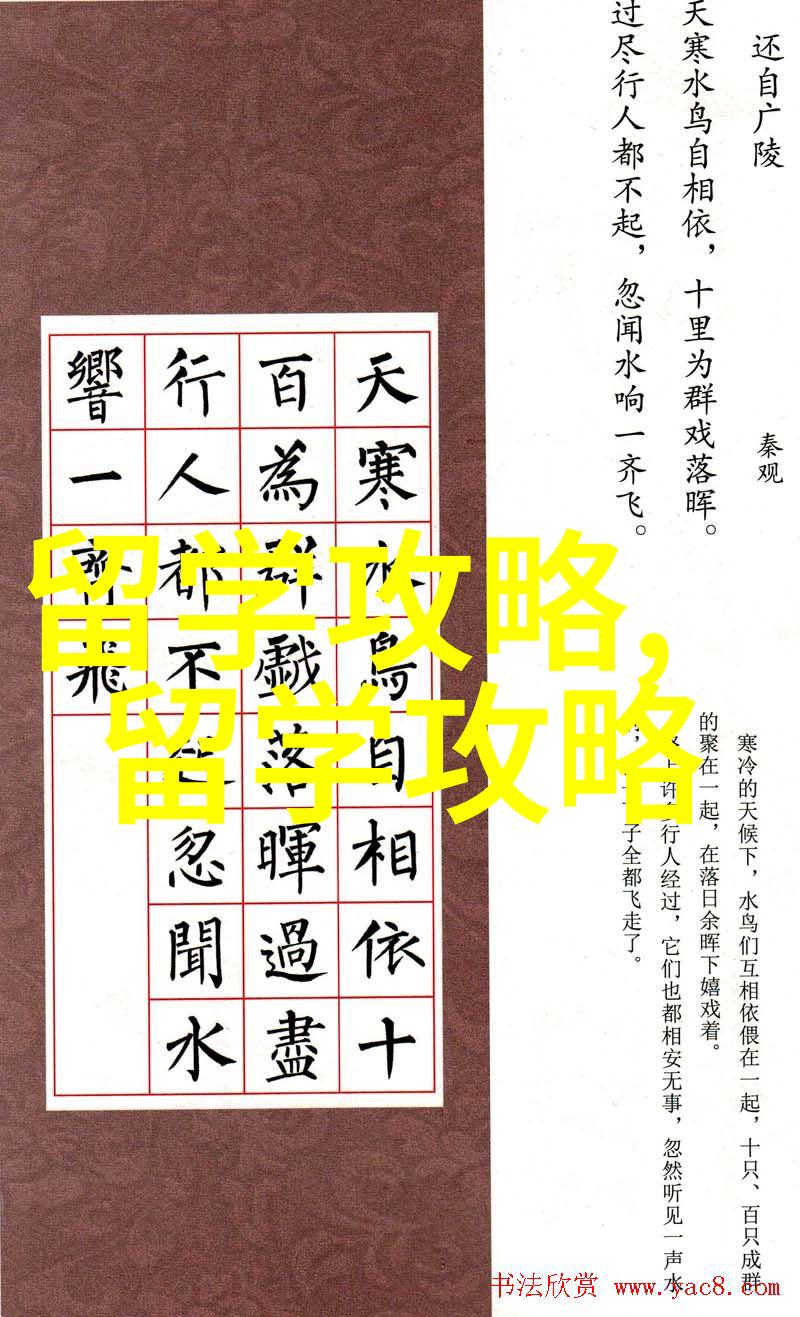 还自广陵
秦观
天寒水鸟自相依，十里为群戏落晖。
过尽行人都不起，忽闻水响一齐飞。
天寒水鳥自相依十
百為群戲落暉過盡
行人都不起忽聞水
響一齊飛
留学攻略,
留学攻略
寒冷的天候下，水鸟们互相依偎在一起，十只、百只成群
的聚在一起，在落日余晖下嬉戏着。
上许多行人经过，它们也都相安无事，忽然听见一声水
子全都飞走了。
书法欣赏 www.yac8.com